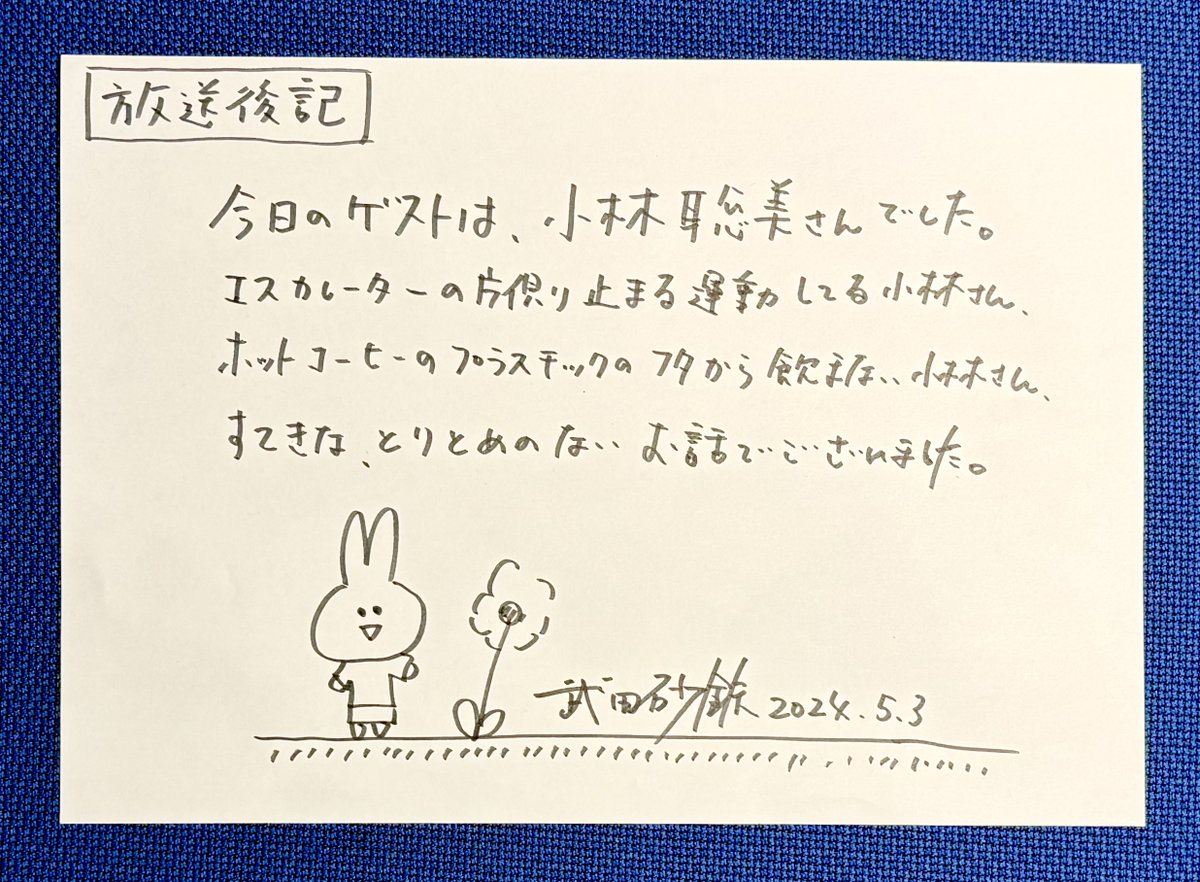 放送後記
今日のゲストは、小林聡美さんでした。
エスカレーターの片側り止まる運動してる小林さん、
ホットコーヒーのプラスチックのフタから飲まない小林さん、
すてきな、とりとめのない お話でございました。
武田砂鉄 2024.5.3